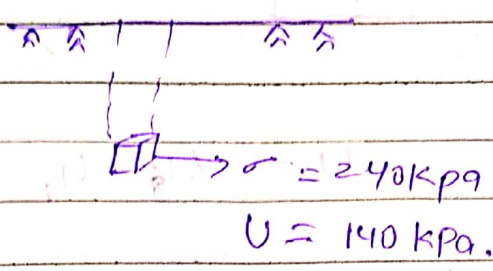 σ = 240kpa
U = 140 kPa.